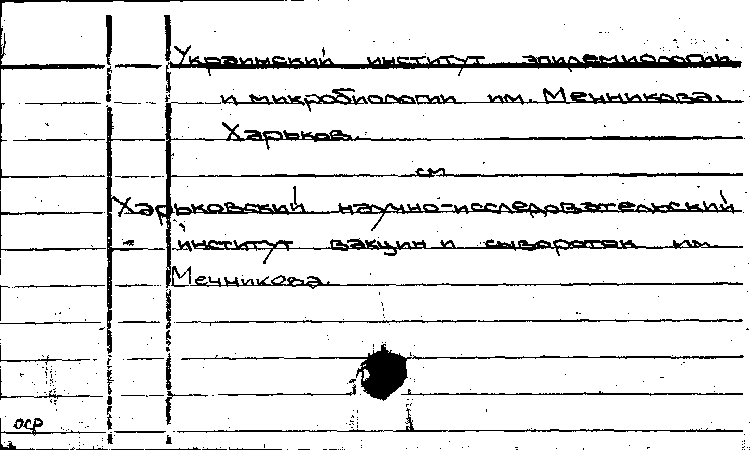 Украинский институт эпидемиологии
и микробиологии им. Мечникова.
Харьков.
см
Харьковский научно-исследовательский
институт вакцин и сывороток им.
Мечникова.
оср